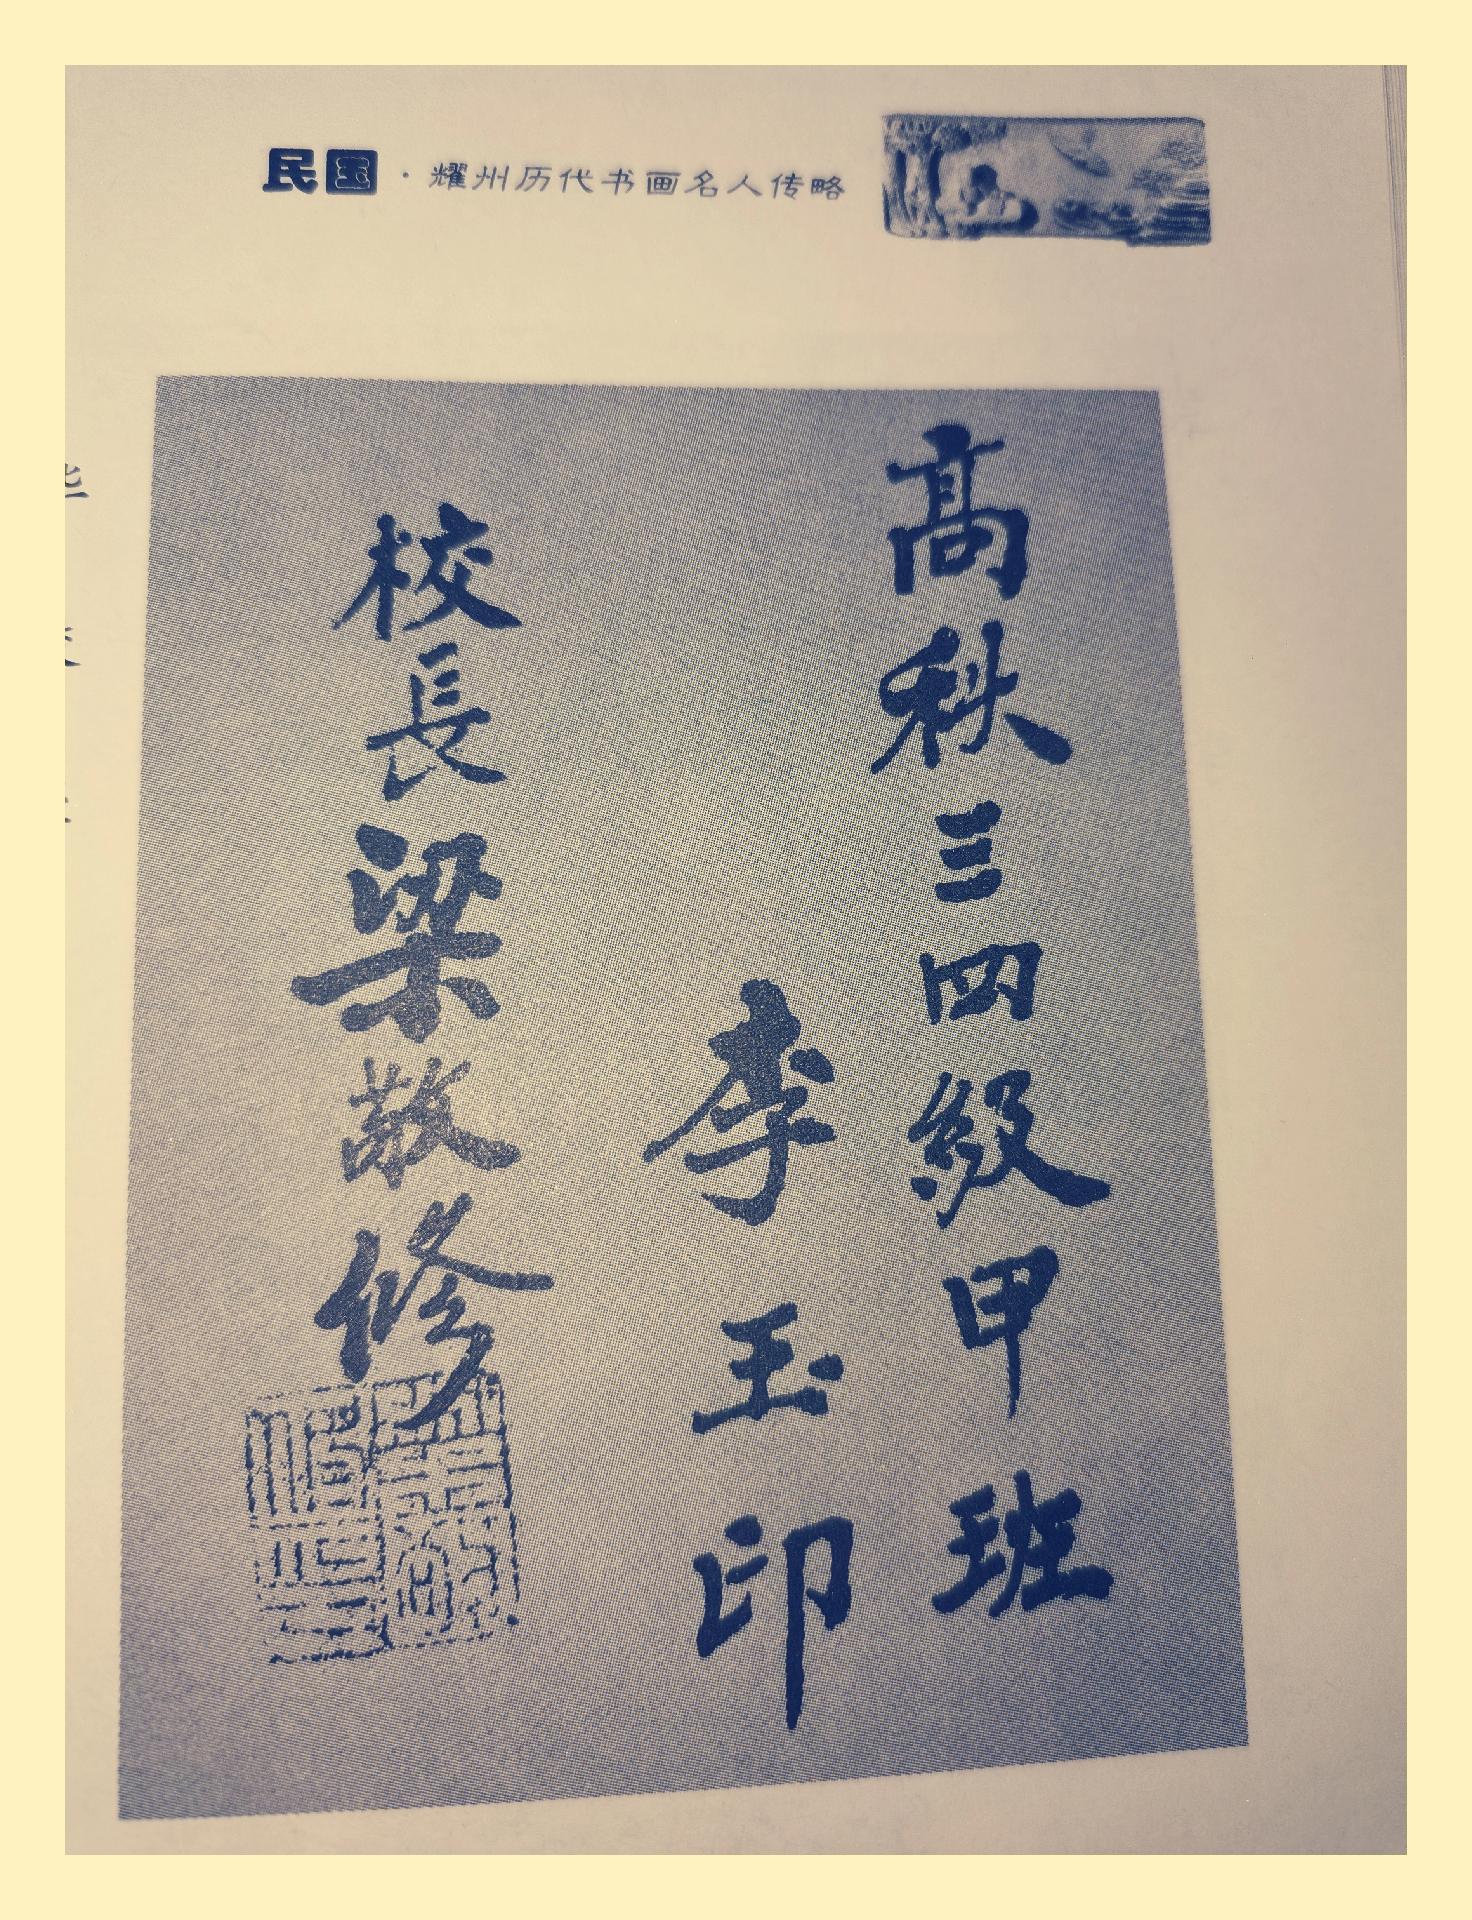 民国·耀州历代书画名人传略
高秋三四級甲班
李玉印
校長梁敬修